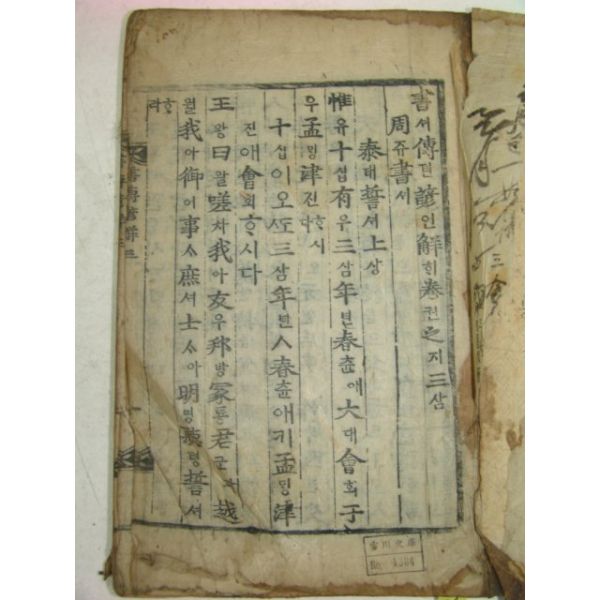 書셔傳뎐諺언解ᄒᆡ卷권之지三삼
周쥬書셔
泰태誓셔上샹
惟유十십有유三삼年년春츈애大대會회于
우孟ᄆᆡᆼ津진ᄒᆞ시다
十십이오ᄯᅩ三삼年년ㅅ春츈애기孟ᄆᆡᆼ津
진애會회ᄒᆞ시다
王왕曰왈嗟차我아友우邦방冢툥君군과越
월我아御어事ᄉᆞ庶셔士ᄉᆞ아明명聽텽誓셔
ᄒᆞ라
書傳諺解三